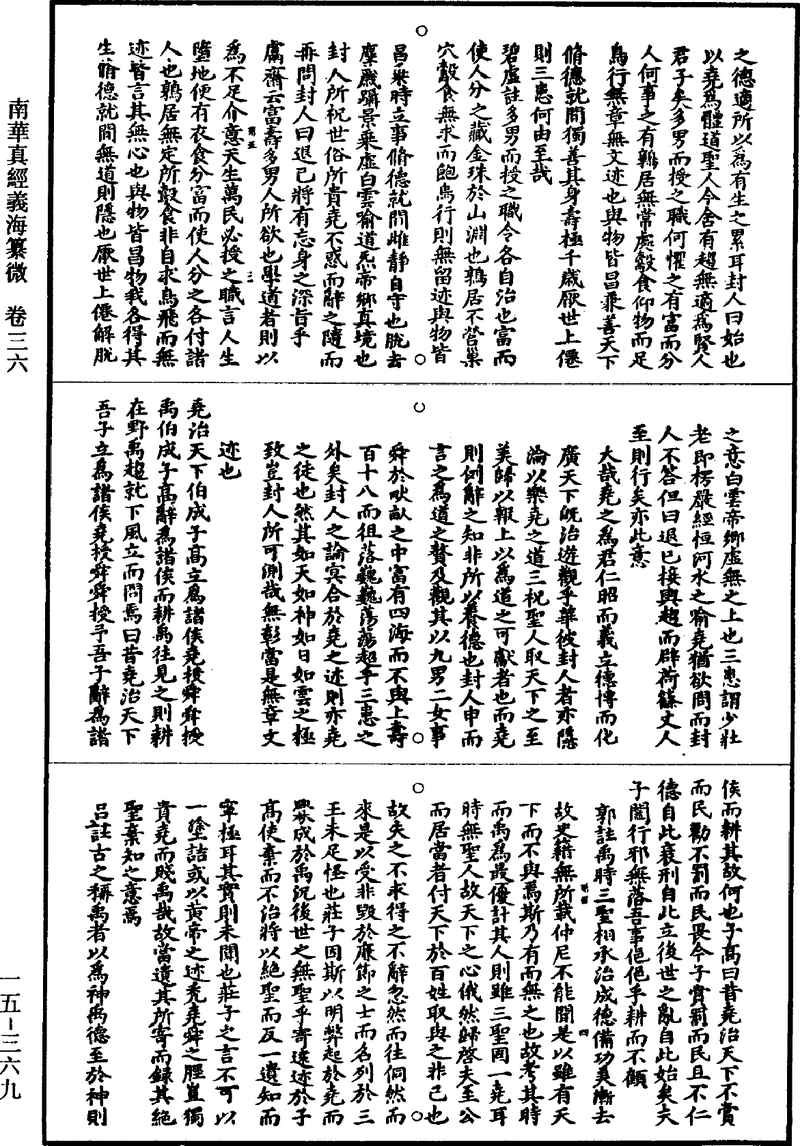 南華真經義海纂微　卷三六
之德適所以為有生之累耳封人曰始也
以堯為體道聖人今舍有趨無適為賢人
君子矣多男而授之職何懼之有富而分
人何事之有鶉居無常處鷇食仰物而足
鳥行無章無文迹也與物皆昌兼善天下
脩德就閒獨善其身壽極千歲厭世上僊
則三患何由至哉
碧虛註多男而授之職令各自治也富而
使人分之藏金珠於山淵也鶉居不營巢
穴鷇食無求而飽鳥行則無留迹與物皆
昌乘時立事脩德就閒雌靜自守也脫去
塵羸躡景乘虛白雲喻道炁帝鄉真境也
封人所祝世俗所貴堯不惑而辭之隨而
再問封人曰退已將有忘身之深旨乎
鬳齋云富壽多男人所欲也學道者則以
為不足介意天生萬民必授之職言人生
墮地便有衣食分富而使人分之各付諸
人也鶉居無定所鷇食非自求鳥飛而無
迹皆言其無心也與物皆昌物我各得其
生脩德就閒無道則隱也厭世上僊解脫
之意白雲帝鄉虛無之上也三患謂少壯
老即楞嚴經恒河水之喻堯猶欲問而封
人不答但曰退已接輿趨而辟荷蓧丈人
至則行矣亦此意
大哉堯之為君仁昭而義立德博而化
廣天下既治遊觀乎華彼封人者亦隱
淪以樂堯之道三祝聖人取天下之至
美歸以報上以為道之可獻者也而堯
則例辭之知非所以養德也封人申而
言之為道之贅及觀其以九男二女事
舜於畎畝之中富有四海而不與上壽
百十八而徂落巍巍蕩蕩超乎三患之
外矣封人之論冥合於堯之迹則亦堯
之徒也然其如天如神如日如雲之極
致豈封人所可測哉無彰當是無章文
迹也
堯治天下伯成子高立為諸侯堯授舜舜授
禹伯成子高辭為諸侯而耕禹往見之則耕
在野禹趨就下風立而問焉曰昔堯治天下
吾子立為諸侯堯授舜舜授予吾子辭為諸
侯而耕其故何也子高曰昔堯治天下不賞
而民勸不罰而民畏今子賞罰而民且不仁
德自此衰刑自此立後世之亂自此始矣夫
子闔行邪無落吾事俋俋乎耕而不顧
郭註禹時三聖相承治成德備功美漸去
故史籍無所載仲尼不能間是以雖有天
下而不與焉斯乃有而無之也故考其時
而禹為最優計其人則雖三聖固一堯耳
時無聖人故天下之心俄然歸啓夫至公
而居當者付天下於百姓取與之非己也
故失之不求得之不辭忽然而往侗然而
來是以受非毀於廉節之士而名列於三
王未足怪也莊子因斯以明弊起於堯而
釁成於禹況後世之無聖乎寄遠迹於子
高使棄而不治將以絕聖而反一遺知而
寧極耳其實則未聞也莊子之言不可以
一塗詰或以黃帝之迹禿堯舜之脛豈獨
貴堯而賤禹哉故當遺其所寄而錄其絕
聖棄知之意焉
呂註古之稱禹者以為神禹德至於神則
一五-三六九